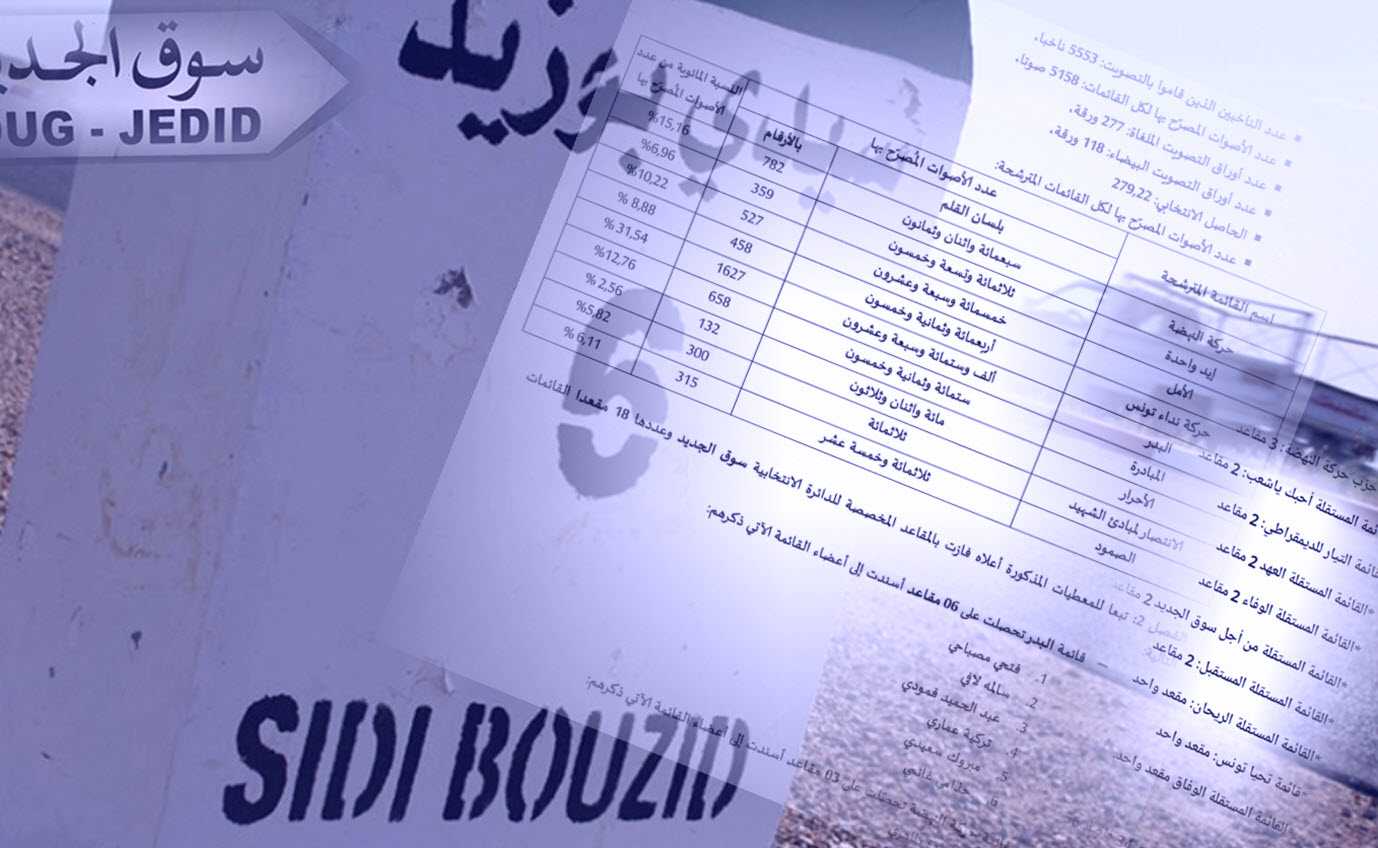 سوق الجديد
OUG - JEDID
سيدي بوزيد
6
SIDI BOUZID
عدد الناخبين الذين قاموا بالتصويت: 5553 ناخبا.
عدد الأصوات المصرّح بها لكل القائمات: 5158 صوتا.
عدد أوراق التصويت الملغاة: 277 ورقة.
عدد أوراق التصويت البيضاء: 118 ورقة.
الحاصل الانتخابي: 279,22
عدد الأصوات المصرّح بها لكل القائمات المترشحة:
اسم القائمة المترشحة عدد الأصوات المُصرّح بها النسبة المائوية من عدد الأصوات المصرّح بها
بلسان القلم بالأرقام
حركة النهضة سبعمائة واثنان وثمانون 782 15,16%
إيد واحدة ثلاثمائة وتسعة وخمسون 359 6,96%
الأمل خمسمائة وسبعة وعشرون 527 10,22%
حركة نداء تونس أربعمائة وثمانية وخمسون 458 8,88 %
البدر ألف وستمائة وسبعة وعشرون 1627 31,54 %
المبادرة ستمائة وثمانية وخمسون 658 12,76%
الأحرار مائة واثنان وثلاثون 132 2,56 %
الانتصار لمبادئ الشهيد ثلاثمائة 300 5,82%
الصمود ثلاثمائة وخمسة عشر 315 6,11 %
الفصل 2: تبعا للمعطيات المذكورة أعلاه فازت بالمقاعد المخصصة للدائرة الانتخابية سوق الجديد وعددها 18 مقعدا القائمات
– قائمة البدر تحصلت على 06 مقاعد أسندت إلى أعضاء القائمة الآتي ذكرهم:
1. فتحي مصباحي
2. سالمه لافي
3. عبد الحميد قمودي
4. تركية عماري
5. مبروك سعيدي
6.
تحصلت على 03 مقاعد أسندت إلى أعضاء القائمة الآتي ذكرهم:
حزب حركة النهضة: 3 مقاعد
المستقلة أحبك ياشعب: 2 مقاعد
قائمة التيار للديمقراطي: 2 مقاعد
*القائمة المستقلة العهد 2 مقاعد
*القائمة المستقلة الوفاء 2 مقاعد
*القائمة المستقلة من أجل سوق الجديد 2 مقاعد
*القائمة المستقلة المستقبل: 2 مقاعد
*القائمة المستقلة الريحان: مقعد واحد
*قائمة تحيا تونس: مقعد واحد
القائمة المستقلة الوفاق مقعد واحد